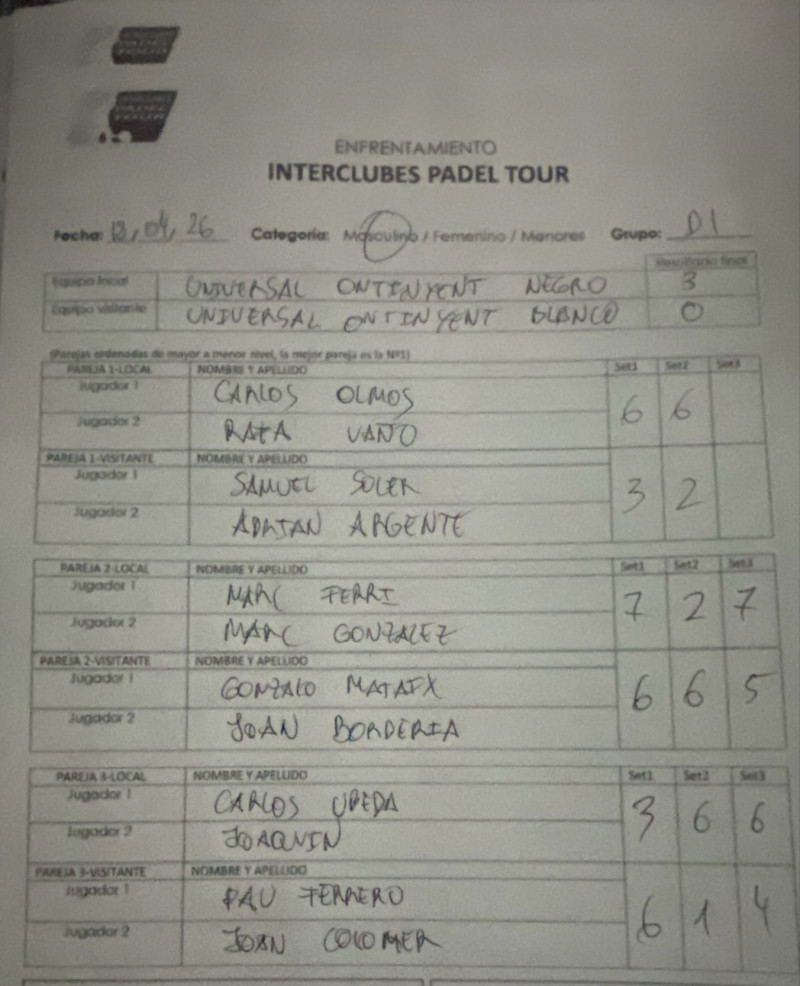 INTERCLUBES
PADEL
TOUR
INTERCLUBES
PADEL
TOUR
ENFRENTAMIENTO
INTERCLUBES PADEL TOUR
Fecha: 18, 04, 26 Categoría: Masculino / Femenino / Menores Grupo: D1
Resultado final
Equipo local UNIVERSAL ONTINYENT NEGRO 3
Equipo visitante UNIVERSAL ONTINYENT BLANCO 0
(Parejas ordenadas de mayor a menor nivel, la mejor pareja es la Nº1)
PAREJA 1-LOCAL NOMBRE Y APELLIDO Set1 Set2 Set3
Jugador 1 CARLOS OLMOS
6 6
Jugador 2 RAFA VAÑO
PAREJA 1-VISITANTE NOMBRE Y APELLIDO
Jugador 1 SAMUEL SOLER
3 2
Jugador 2 ADRIAN ARGENTE
PAREJA 2-LOCAL NOMBRE Y APELLIDO Set1 Set2 Set3
Jugador 1 MARC FERRI
7 2 7
Jugador 2 MARC GONZALEZ
PAREJA 2-VISITANTE NOMBRE Y APELLIDO
Jugador 1 GONZALO MATAIX
6 6 5
Jugador 2 JOAN BORDERIA
PAREJA 3-LOCAL NOMBRE Y APELLIDO Set1 Set2 Set3
Jugador 1 CARLOS UBEDA
3 6 6
Jugador 2 JOAQUIN
PAREJA 3-VISITANTE NOMBRE Y APELLIDO
Jugador 1 PAU FERRERO
6 1 4
Jugador 2 JOAN COLOMER